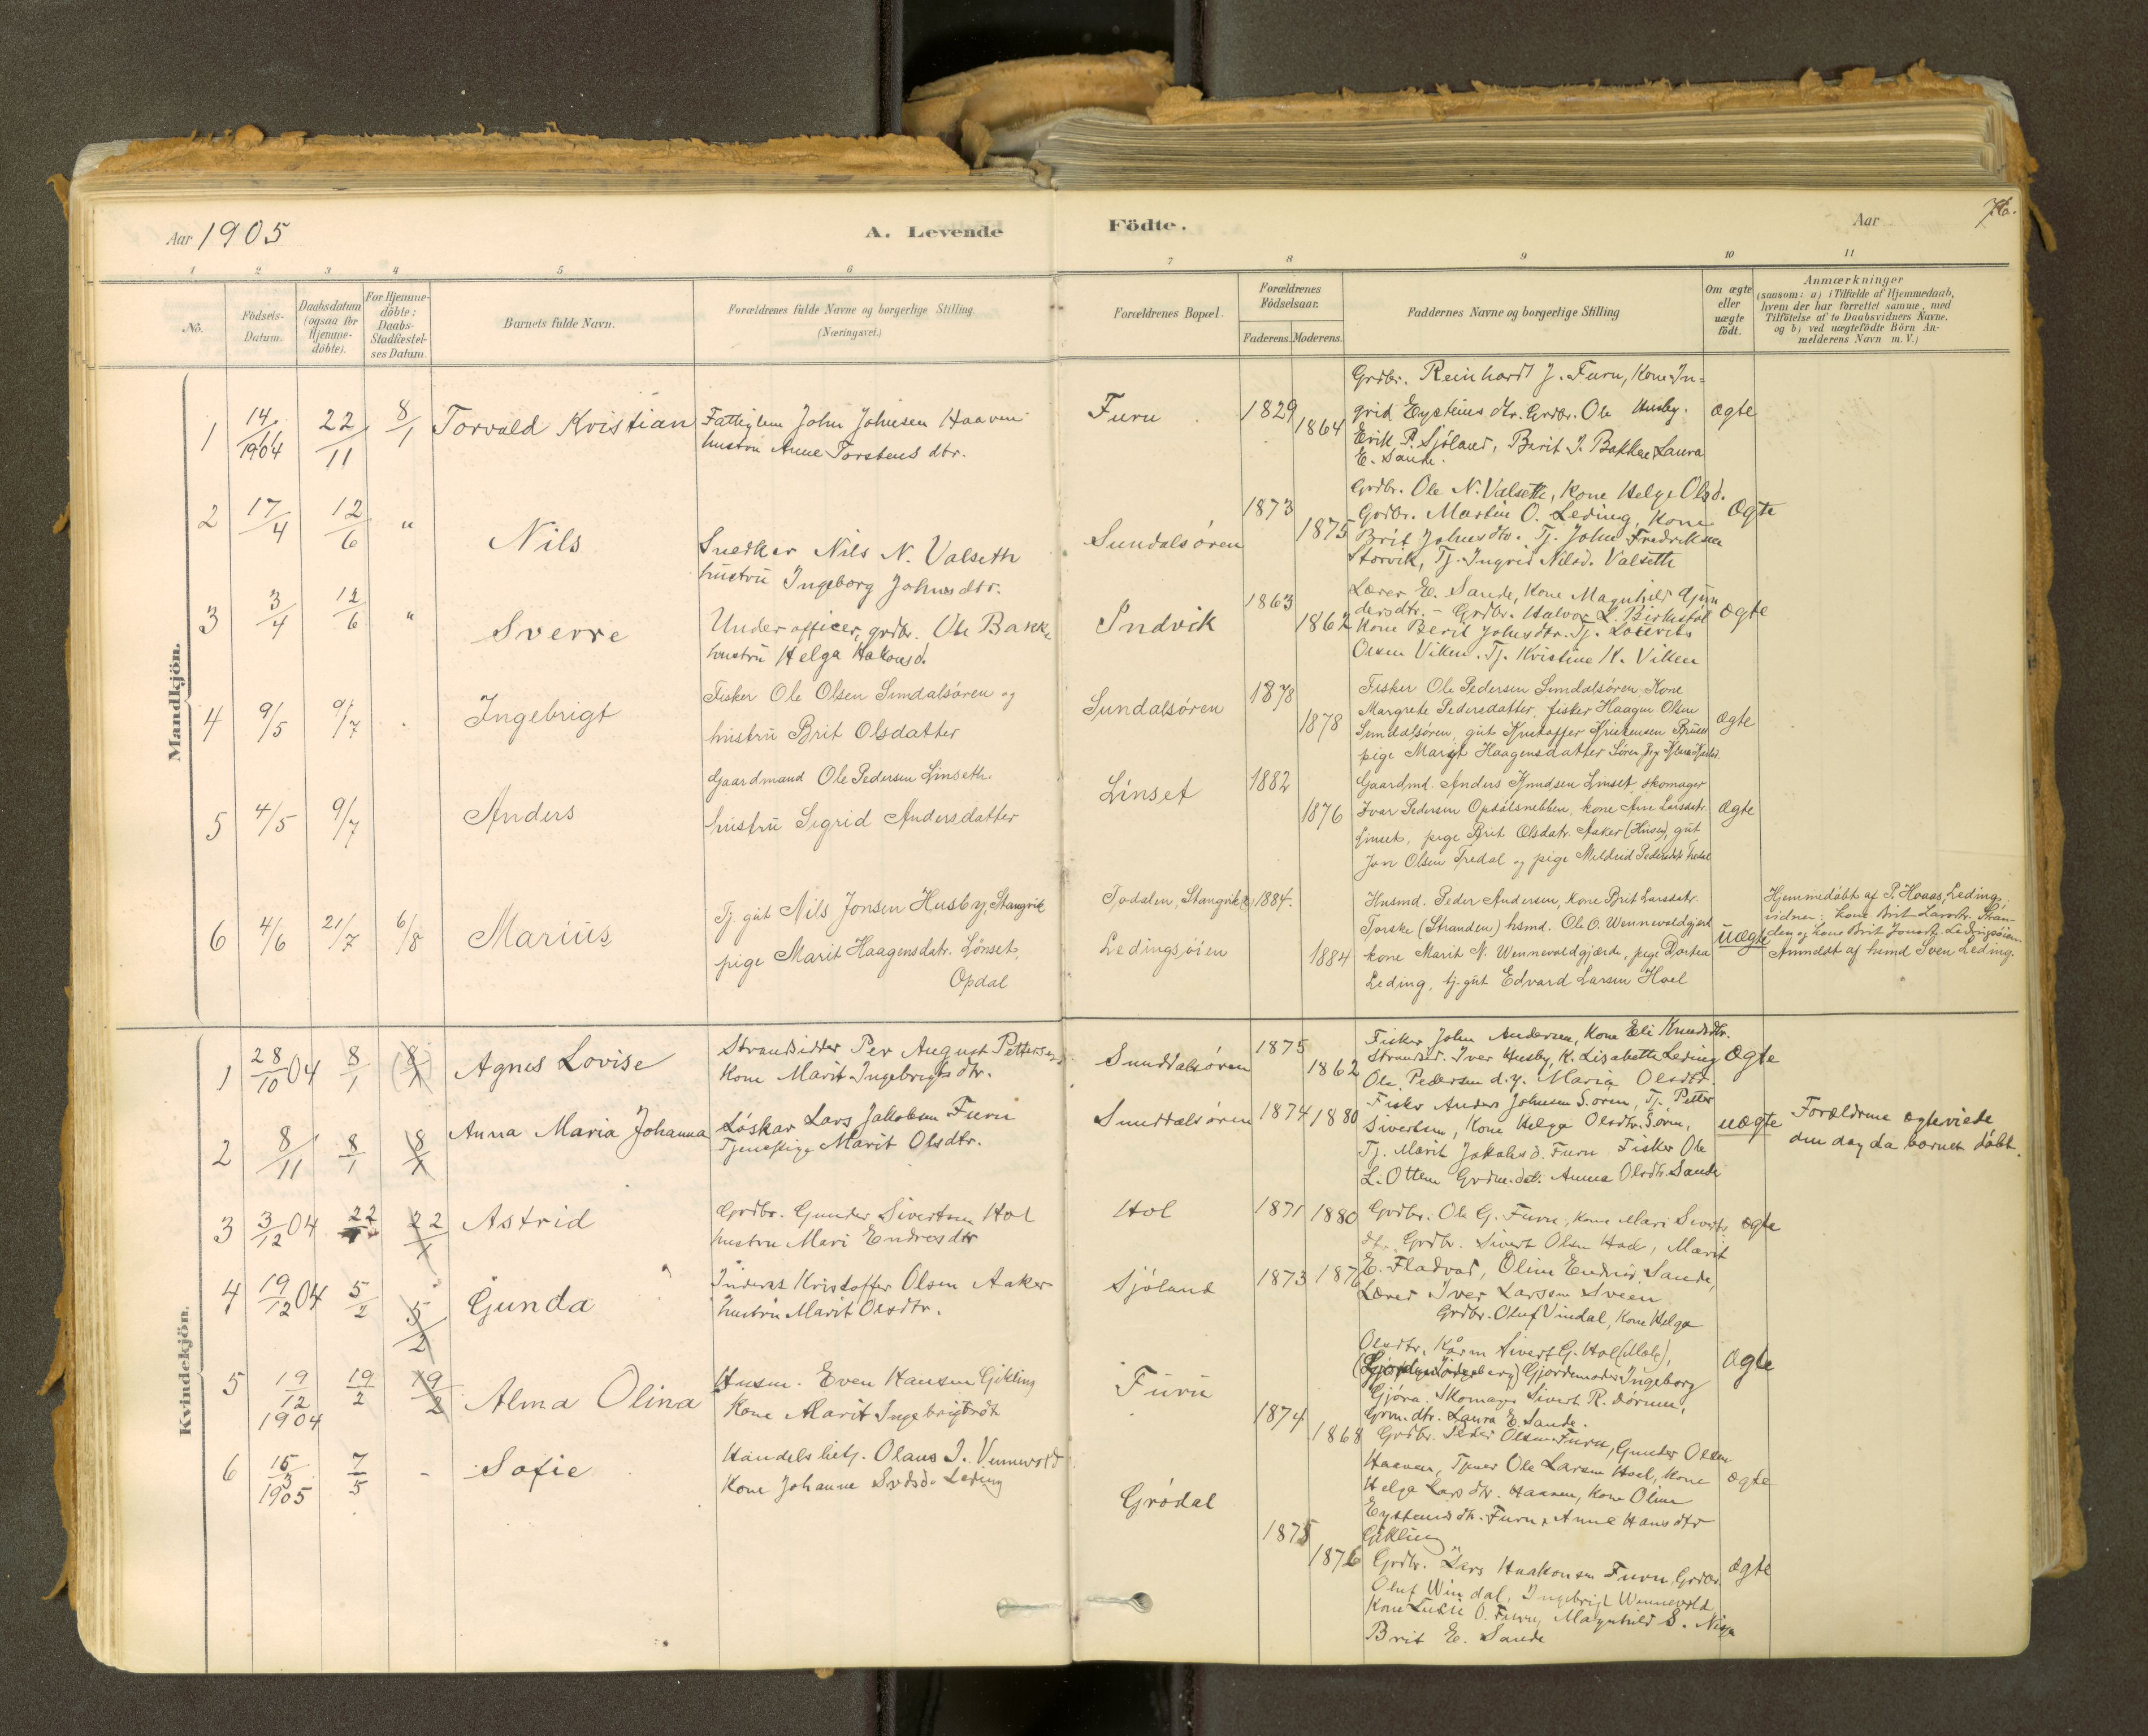 Aar 1905
A. Levende
Födte.
Aar
76.
1 2 3 4 5 6 7 8 9 10 11
No.
Födsels-
Datum.
Daabsdatum
(ogsaa for
Hjemme-
döbte).
For Hjemme-
döbte:
Daabs-
Stadfæstel-
ses Datum.
Barnets fulde Navn.
Forældrenes fulde Navne og borgerlige Stilling
(Næringsvei.)
Forældrenes Bopæl.
Forældrenes
Födselsaar.
Faderens. Moderens.
Faddernes Navne og borgerlige Stilling
Om ægte
eller
uægte
födt.
Anmærkninger
(saasom: a) i Tilfælde af Hjemmedaab,
hvem der har forrettet samme, med
Tilföielse af to Daabsvidners Navne.
og b) ved uægtefödte Börn An-
melderens Navn m. V.)
Mandkjön.
1 14/11 1904 22/11 8/1 Torvald Kristian
Fattiglem John Johnsen Haaven
hustru Anne Torstens dtr.
Furu 1829 1864
Grdbr. Reinhardt J. Furu, Kone In-
grid Eysteins dtr. Grdbr. Ole Husby.
Erik P. Sjöland, Berit J. Bakken Laura
E. Sande.
ægte
2 17/4 12/6 " Nils
Snedker Nils N. Valseth
hustru Ingeborg Johnsdtr.
Sundalsören 1873 1875
Grdbr. Ole N. Valseth, Kone Helge Olsd.
Grdbr. Martin O. Leding, Kone
Brit Johnsdtr. Tj. John Fredriksen
Storvik, Tj. Ingrid Nilsd. Valseth
Ægte
3 3/4 12/6 " Sverre
Underofficer, grdbr. Ole Bakke
hustru Helga Hakonsd.
Indvik 1863 1862
Lærer E. Sande, Kone Magnhild Gun
dersdtr. - Grdbr. Halvor L.
Kone Berit Johnsdtr. Tj.
Olsen Viken. Tj. Kristine K. Viken
ægte
4 9/5 9/7 Ingebrigt
Fisker Ole Olsen Sundalsøren og
hustru Brit Olsdatter
Sundalsøren 1878 1878
Fisker Ole Pedersen Sundalsøren, Kone
Margrete Pedersdatter, fisker Haagen Olsen
Sundalsøren, gut Kristoffer Kristensen
pige Marit Haagensdatter
Ægte
5 4/5 9/7 Anders
Gaardmand Ole Pedersen Linseth.
hustru Sigrid Andersdatter
Linset 1882 1876
Gaardmd. Anders Knudsen Linset, skomager
Ivar Pedersen Opdølsnebben, kone Ane Larsdtr.
Linset, pige Brit Olsdatr. Aaker (Husby), gut
Jon Olsen Tredal og pige Meldrid Pedersdtr Tredal
Ægte
6 4/6 21/7 6/8 Marius
Tj. gut Nils Jonsen Husby, Stangvik
pige Marit Haagensdatr. Lønset,
Opdal
Todalen, Stangvik 1884.
Ledingsøien 1884
Husmd. Peder Andersen, kone Brit Larsdtr.
Torske (Stranden) hsmd. Ole O. Wennevoldgjerd
kone Marit N. Wennevoldgjærde, pige Dortea
Leding, tj. gut Edvard Larsen Hoel
uægte
Hjemmedøbt af P. Hoaas, Leding,
vidner: kone Brit Larsdtr. Stran-
den og kone Brit Jonsdtr. Ledingsøien.
Anmeldt af hsmd Sven Leding.
Kvindekjön.
1 28/10 04 8/1 (8/1 Agnes Lovise
Strandsidder Per August Pettersen
Kone Marit Ingebrigts dtr.
Sunddalsören 1875 1862
Fisker John Andersen, Kone Eli Knudsdtr.
Strands. Iver Husby, K. Lisabeth Leding
Ole Pedersen d.y. Maria Olsdtr.
Ægte
2 8/11 8/1 8/1 Anna Maria Johanna
Löskar Lars Jakobsen Furu
Tjenestpige Marit Olsdtr.
Sunddalsören 1874 1880
Fisker Anders Johnsen Sören, Tj. Petter
Sivertsen, Kone Helga Olsdtr. Sören,
Tj. Marit Jakobsd. Furu Fisker Ole
L. Ottem Grdm.dat. Anna Olsdtr. Sande
uægte
Forældrene ægteviede
den dag da barnet döbt.
3 3/12 04 22 22/1 Astrid
Grdbr. Gunder Sivertsen Hol
hustru Mari Endresdtr
Hol 1871 1880
Grdbr. Ole G. Furu, Kone Mari Siverts
dtr. Grdbr. Sivert Olsen Hol, Marit
E. Fladvad, Oline Endrid. Sande,
Lærer Iver Larssen Sveen
ægte
4 19/12 04 5/2 5/2 Gunda
Inderst Kristoffer Olsen Aaker
hustru Marit Olsdtr.
Sjöland 1873 1876
Grdbr. Oluf Vindal, Kone Helga
Olsdtr, Sivert G. Hol (Mæle),
Gjordemoder Ingeborg
Gjöra. Skomager Sivert R.
Grm. dtr. Laura E. Sande.
Ægte
5 19/12 1904 19/2 19/2 Alma Olina
Husm. Even Hansen Gikling
Kone Marit Ingebrigtsdtr
Furu 1874 1868
Grdbr. Peder Olsen Furu, Gunder Olsen
Haaven, Tjener Ole Larsen Hoel, Kone
Helga Larsdtr. Haaven, Kone Oline
Eysteinsdtr. Furu, Anne Hansdtr
Gikling
ægte
6 15/3 1905 7/5 - Sofie
Handelsbetj. Olaus I. Vennevold
Kone Johanne Leding
Grödal 1875 1876
Grdbr. Lars Haakonsen Furu, Grdbr.
Oluf Windal, Ingebrigt Wennevold,
Kone O. Furu, Magnhild S.
Brit E. Sande
ægte